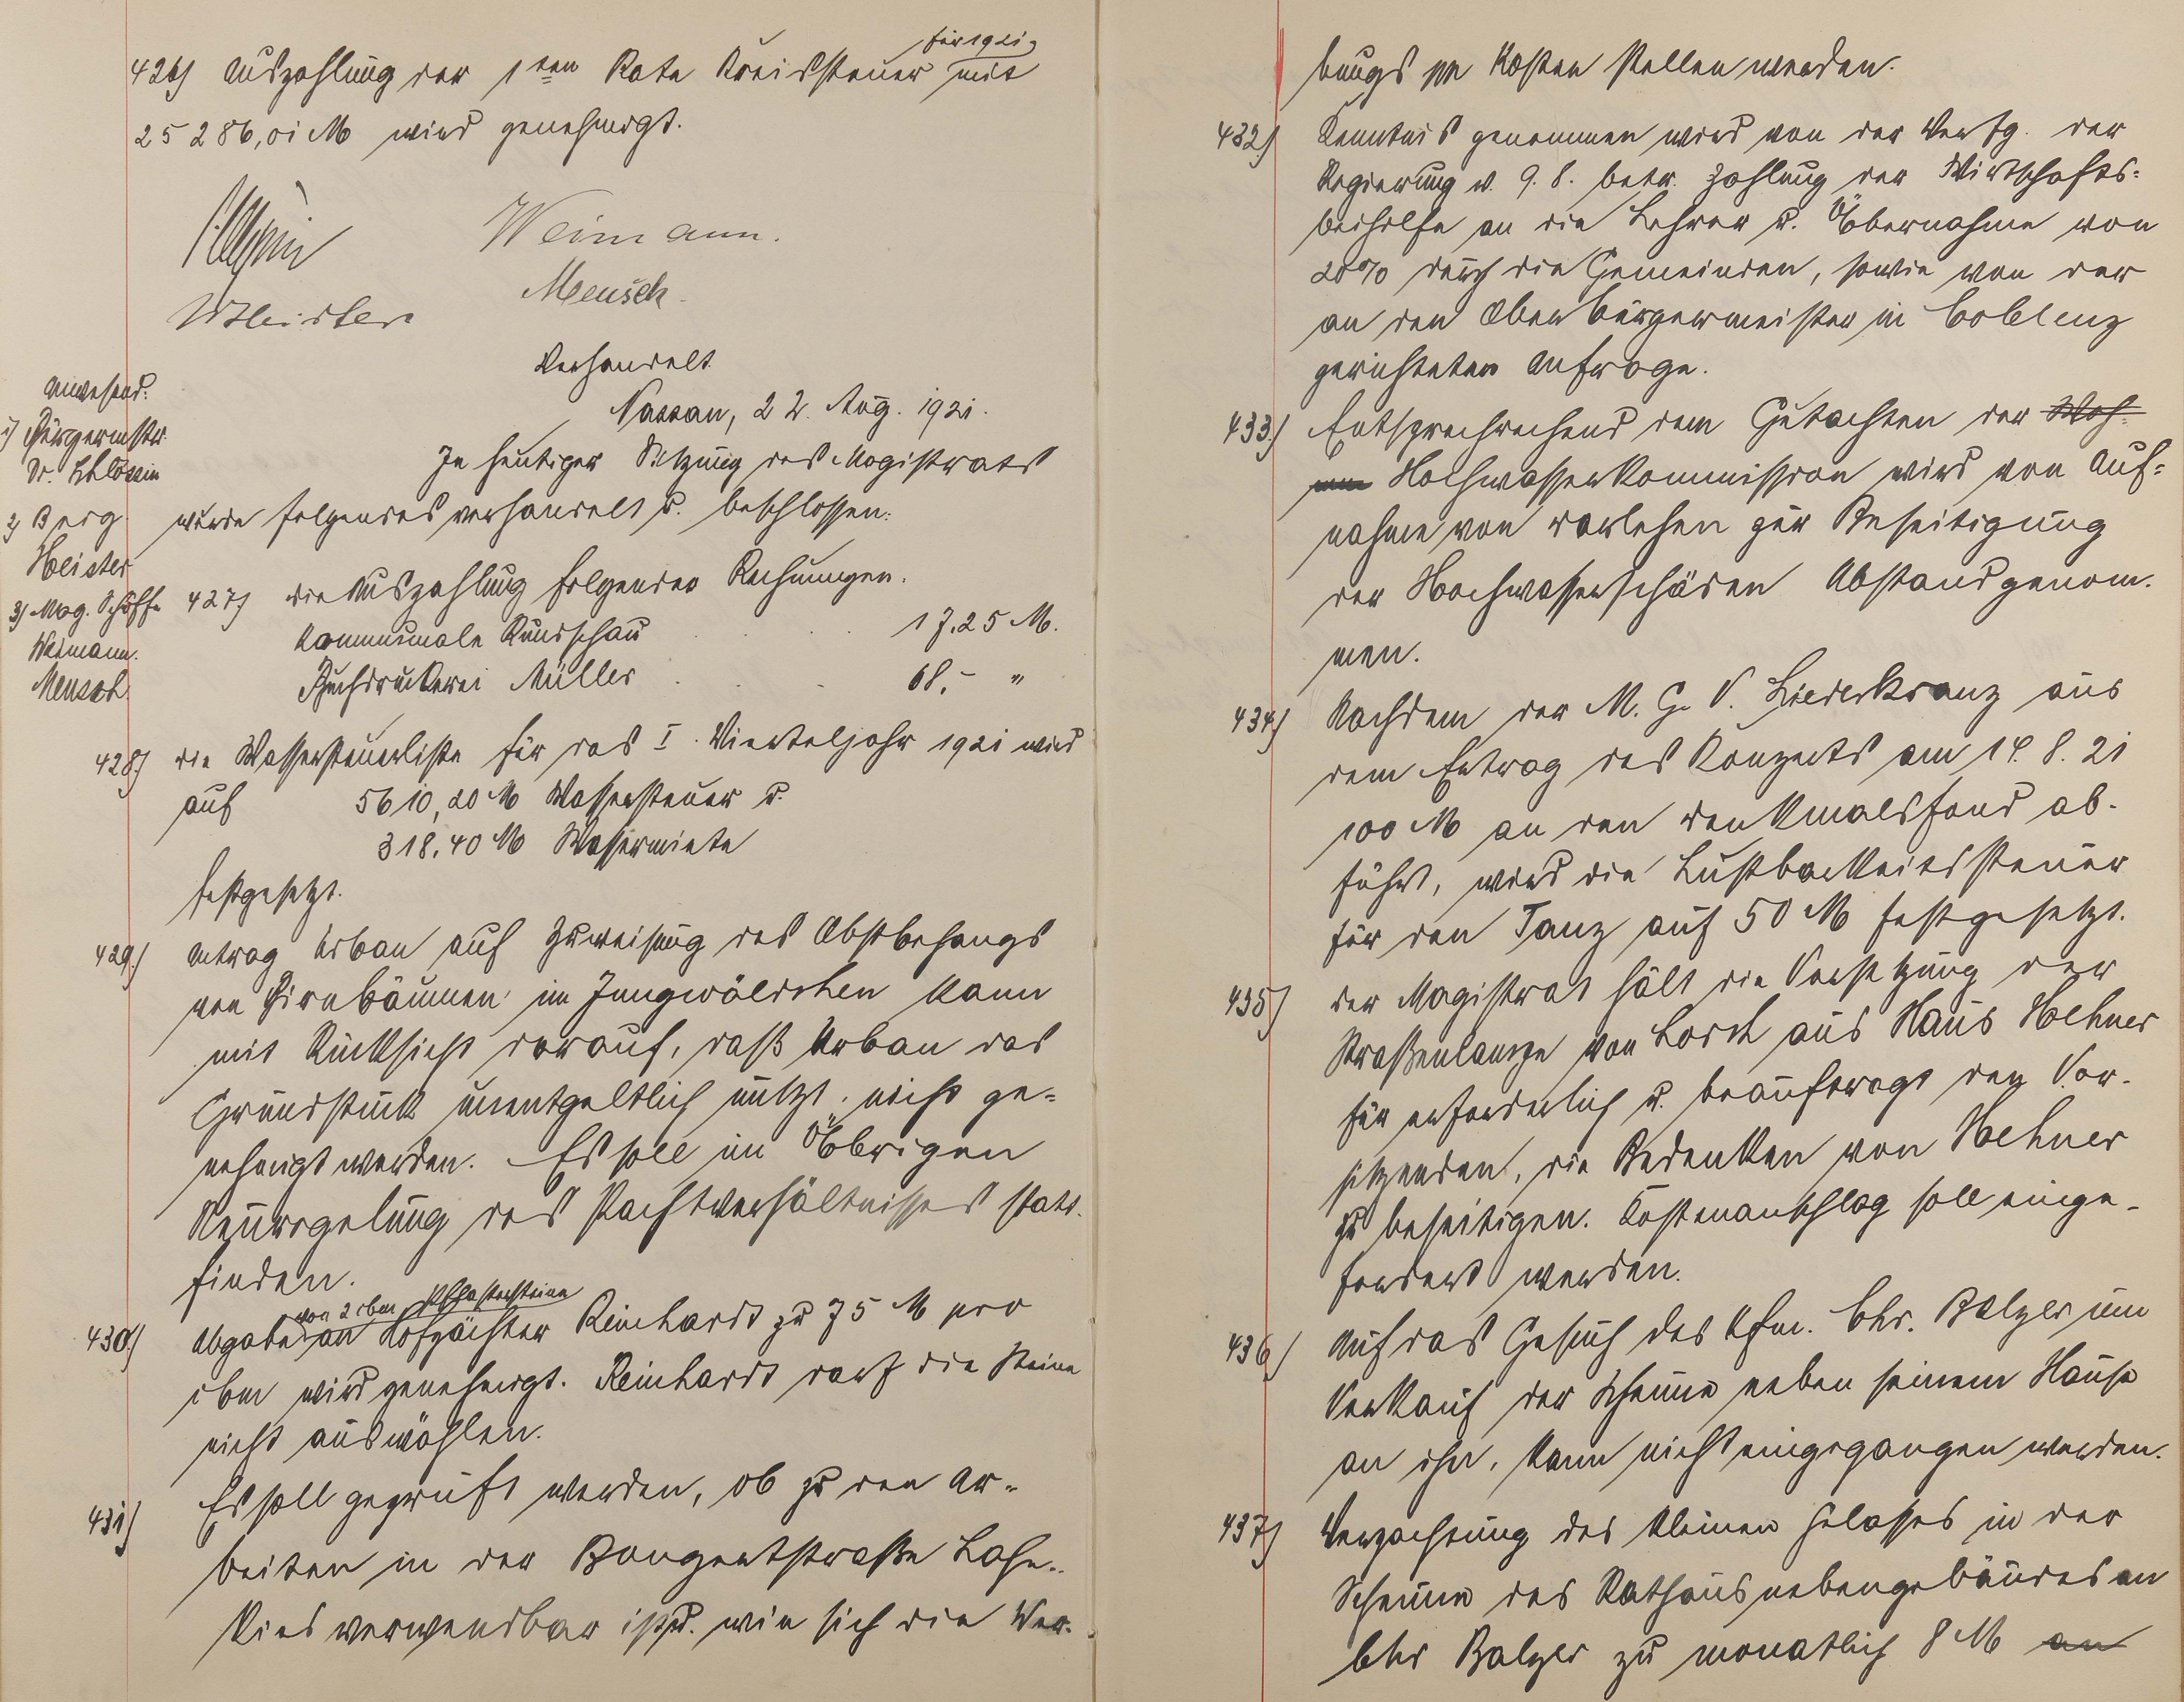 426) Auszahlung der 1ten Rate Kreissteuer für 1921 mit
25 286,01 M wird genehmigt.
Weimann.
Mensch
WHeister
Verhandelt
Nassau, 22. Aug. 1921.
Anwesend:
1) Bürgermstr.
Dr. Schlossin
2) Beig.
Heister
3) Mag. Schöffe
Weimann.
Mensch
In heutiger Sitzung des Magistrats
wurde folgendes verhandelt u. beschlossen:
427) Die Auszahlung folgender Rechnungen.
Kommunale Rundschau . . . 17.25 M.
Buchdruckerei Müller . . 68,– "
428) Die Wassersteuerliste für das I. Vierteljahr 1921 wird
auf 5610,20 M Wassersteuer u.
318,40 M Wassermiete
festgesetzt.
429) Antrag Urban auf Zuweisung des Obstbehangs
von Birnbäumen im Jungwäldchen kann
mit Rücksicht darauf, daß Urban das
Grundstück unentgeltlich nützt, nicht ge-
nehmigt werden. Es soll im Übrigen
Neuregelung des Pachtverhältnisses statt-
finden.
430) Abgabe von 2 cbm Pflastersteine an Hofpächter Reinhardt zu 75 M pro
cbm wird genehmigt. Reinhardt darf die Steine
nicht auswählen.
431) Es soll geprüft werden, ob zu den Ar-
beiten in der Bongertstraße Lahn-
kies verwendbar ist u. wie sich die Wer-
bungskosten stellen werden.
432) Kenntnis genommen wird von der Verfg. der
Regierung v. 9.8. betr. Zahlung der Wirtschafts-
beihilfe an die Lehrer u. Übernahme von
20% durch die Gemeinden, sowie von der
an den Oberbürgermeister in Coblenz
gerichteten Anfrage.
433) Entsprechrechend dem Gutachten der Woh-
Hochwasserkommission wird von Auf-
nahme von Darlehen zur Beseitigung
der Hochwasserschäden Abstand genom-
men.
434) Nachdem der M.G.V. Liederkranz aus
dem Ertrag des Konzerts am 14.8.21
100 M an den Denkmalsfond ab-
führt, wird die Lustbarkeitssteuer
für den Tanz auf 50 M festgesetzt.
435) Der Magistrat hält die Versetzung der
Straßenlampe von Lorch ans Haus Hehner
für erforderlich u. beauftragt den Vor-
sitzenden, die Bedenken von Hehner
zu beseitigen. Kostenanschlag soll einge-
fordert werden.
436) Auf das Gesuch des Kfm. Chr. Balzer um
Verkauf der Scheune neben seinem Hause
an ihn, kann nicht eingegangen werden.
437) Verpachtung des kleinen Gelasses in der
Scheune des Rathausnebengebäudes an
Chr Balzer zu monatlich 8 M an